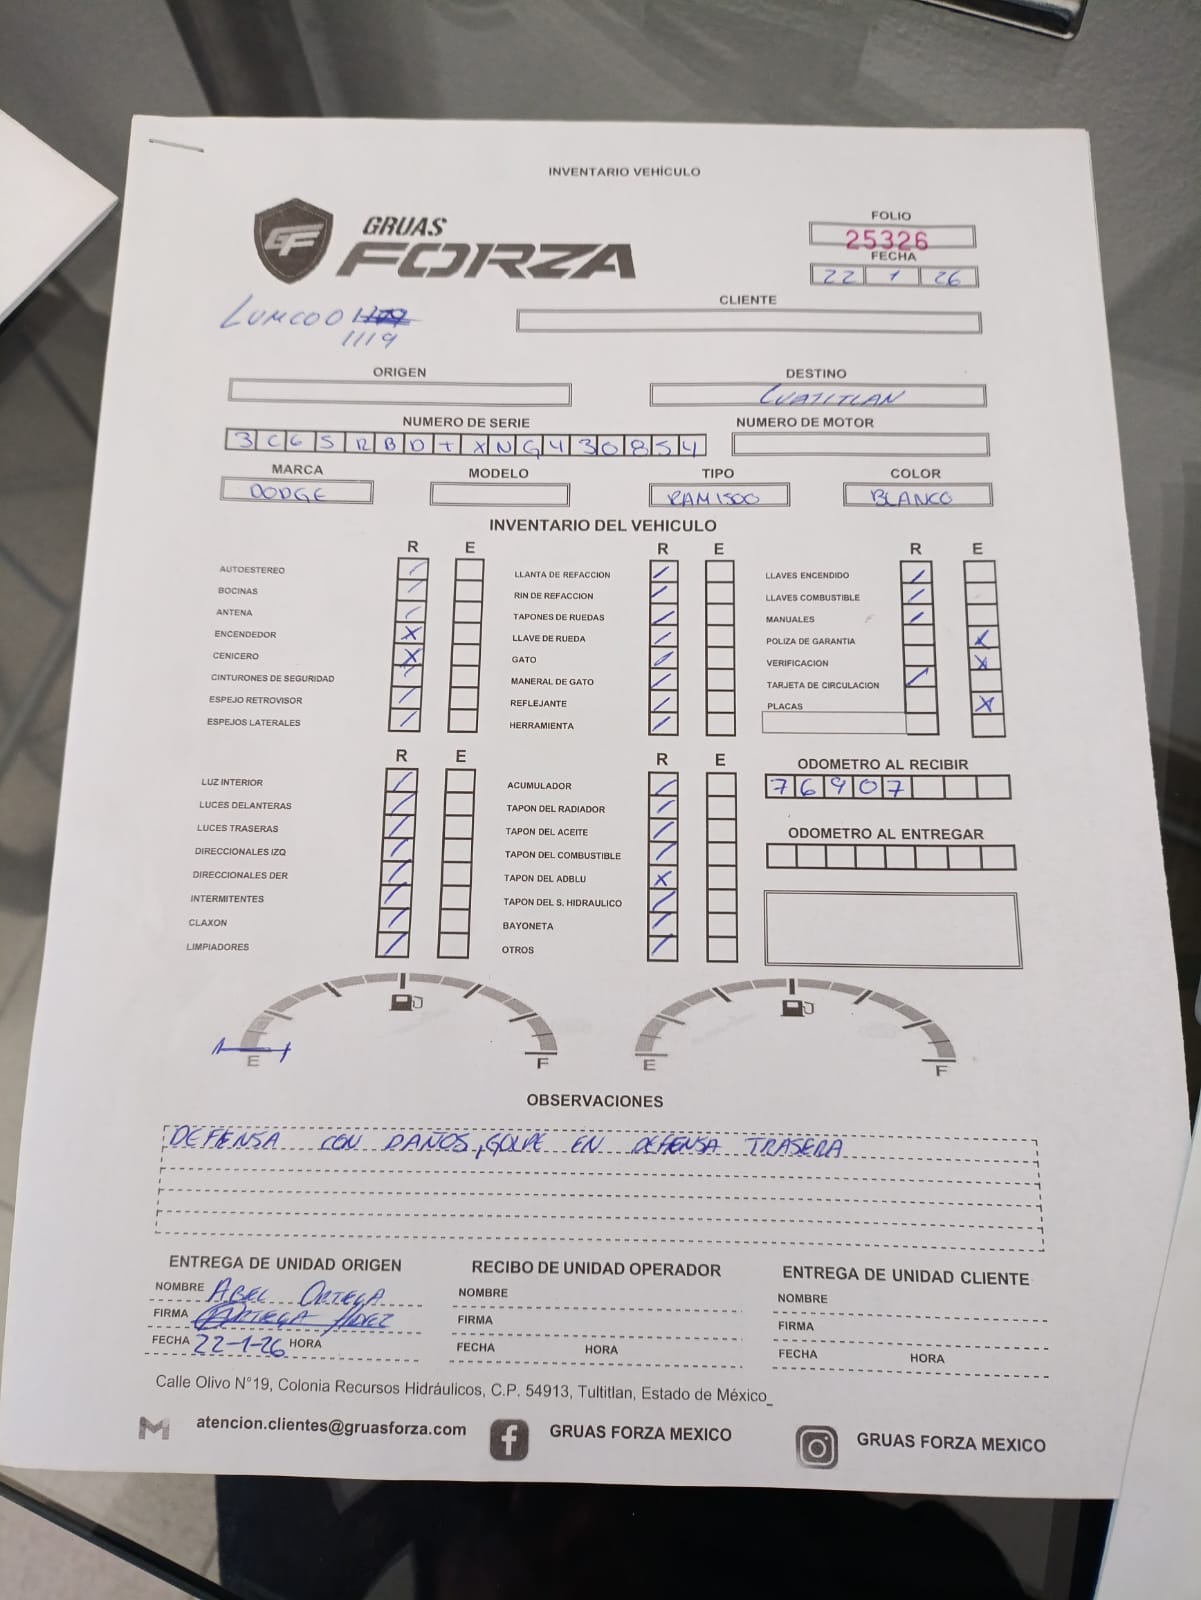 INVENTARIO VEHÍCULO
GF
GRUAS
FORZA
FOLIO
25326
FECHA
22 1 26
CLIENTE
1119
ORIGEN
DESTINO
CUATITLAN
NUMERO DE SERIE
NUMERO DE MOTOR
3C6SRBDTXNG430854
MARCA
MODELO
TIPO
COLOR
DODGE
RAM 1500
BLANCO
INVENTARIO DEL VEHICULO
R E R E R E
AUTOESTEREO / LLANTA DE REFACCION / LLAVES ENCENDIDO /
BOCINAS / RIN DE REFACCION / LLAVES COMBUSTIBLE /
ANTENA / TAPONES DE RUEDAS / MANUALES /
ENCENDEDOR X LLAVE DE RUEDA / POLIZA DE GARANTIA X
CENICERO X GATO / VERIFICACION X
CINTURONES DE SEGURIDAD / MANERAL DE GATO / TARJETA DE CIRCULACION /
ESPEJO RETROVISOR / REFLEJANTE / PLACAS X
ESPEJOS LATERALES / HERRAMIENTA /
R E R E
ODOMETRO AL RECIBIR
76907
LUZ INTERIOR / ACUMULADOR /
LUCES DELANTERAS / TAPON DEL RADIADOR /
LUCES TRASERAS / TAPON DEL ACEITE /
ODOMETRO AL ENTREGAR
DIRECCIONALES IZQ / TAPON DEL COMBUSTIBLE /
DIRECCIONALES DER / TAPON DEL ADBLU X
INTERMITENTES / TAPON DEL S. HIDRAULICO /
CLAXON / BAYONETA /
LIMPIADORES / OTROS /
E F E F
OBSERVACIONES
DEFENSA CON DAÑOS, GOLPE EN DEFENSA TRASERA
ENTREGA DE UNIDAD ORIGEN
RECIBO DE UNIDAD OPERADOR
ENTREGA DE UNIDAD CLIENTE
NOMBRE ABEL ORTEGA
NOMBRE
NOMBRE
FIRMA ORTEGA
FIRMA
FIRMA
FECHA 22-1-26 HORA
FECHA HORA
FECHA HORA
Calle Olivo N°19, Colonia Recursos Hidráulicos, C.P. 54913, Tultitlan, Estado de México_
atencion.clientes@gruasforza.com
GRUAS FORZA MEXICO
GRUAS FORZA MEXICO